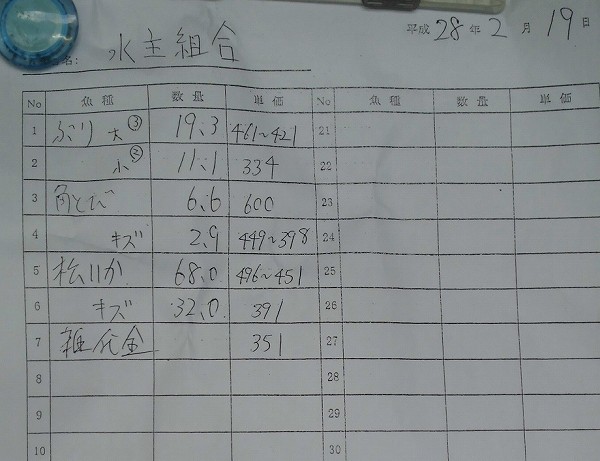 平成 28 年 2 月 19 日
名: 水主組合
No 魚種 数量 単価 No 魚種 数量 単価
1 ぶり 大③ 19.3 461~421 21
2 小② 11.1 334 22
3 角とび 6.6 600 23
4 キズ 2.9 449~398 24
5 松いか 68.0 496~451 25
6 キズ 32.0 391 26
7 雑代金 351 27
8 28
9 29
10 30